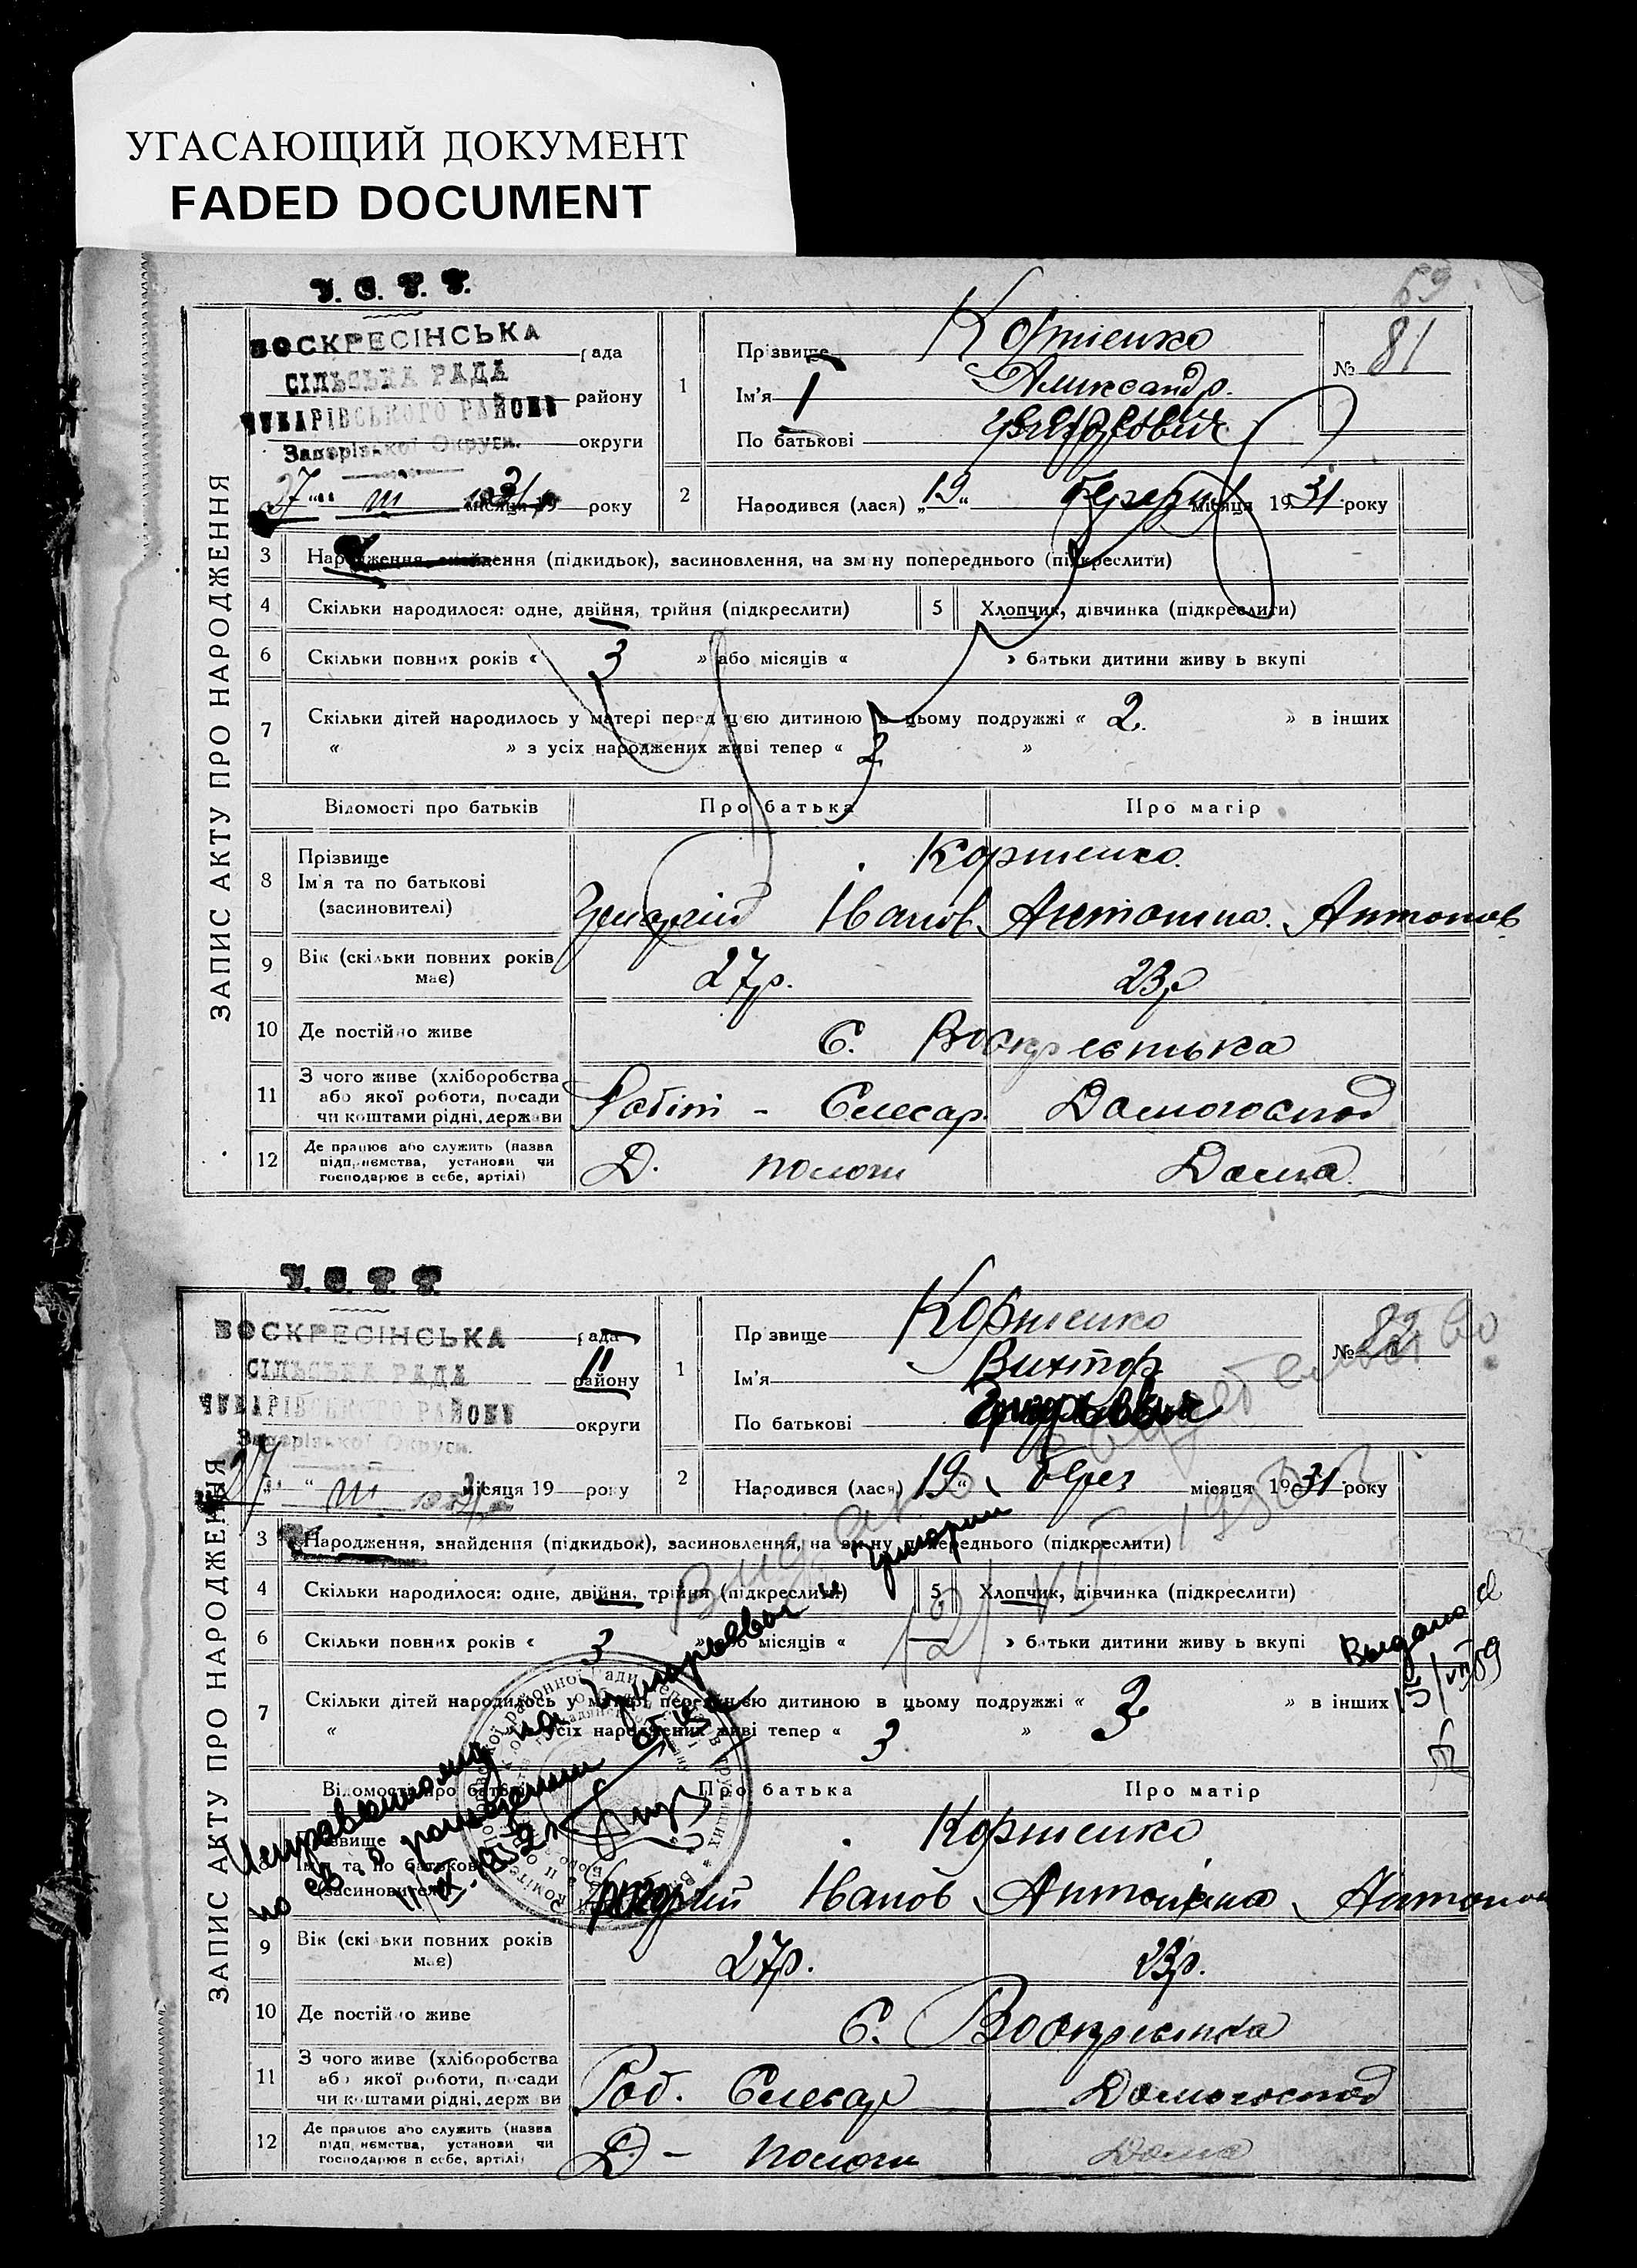 УГАСАЮЩИЙ ДОКУМЕНТ
FADED DOCUMENT
69
У. С. Р. Р.
ЗАПИС АКТУ ПРО НАРОДЖЕННЯ
ВОСКРЕСІНСЬКА рада
СІЛЬСЬКА РАДА
району
ЧУБАРІВСЬКОГО РАЙОНУ
Запорізької Округи. округи
27 " III місяця 1931 року
1 Прізвище Корниенко
Ім'я Александр.
По батькові
№ 81
2 Народився (лася) „19" місяця 1931 року
3 Народження, знайдення (підкидьок), засиновлення, на зміну попереднього (підкреслити)
4 Скільки народилося: одне, двійня, трійня (підкреслити)
5 Хлопчик, дівчинка (підкреслити)
6 Скільки повних років « 3 » або місяців « » батьки дитини живуть вкупі
7 Скільки дітей народилось у матері перед цією дитиною в цьому подружжі « 2. » в інших
« » з усіх народжених живі тепер « 2 »
Відомості про батьків Про батька Про матір
8 Прізвище
Ім'я та по батькові
(засиновителі)
Корниенко.
Іванов Антонина Антонов
9 Вік (скільки повних років має) 27р. 23р
10 Де постійно живе С. Воскресенька
11 З чого живе (хліборобства або якої роботи, посади чи коштами рідні, держави
Робіт - Слесар Домогоспод
12 Де працює або служить (назва підприємства, установи чи господарює в себе, артілі)
Д. пологи Дома
У. С. Р. Р.
ЗАПИС АКТУ ПРО НАРОДЖЕННЯ
ВОСКРЕСІНСЬКА рада
СІЛЬСЬКА РАДА
району
ЧУБАРІВСЬКОГО РАЙОНУ
Запорізької Округи. округи
27 " III місяця 19 року
1 Прізвище Корниенко
Ім'я Виктор
По батькові
№ 82
2 Народився (лася) 19 " берез місяця 1931 року
3 Народження, знайдення (підкидьок), засиновлення, на зміну попереднього (підкреслити)
4 Скільки народилося: одне, двійня, трійня (підкреслити)
5 Хлопчик, дівчинка (підкреслити)
6 Скільки повних років « 3 » або місяців « » батьки дитини живуть вкупі
7 Скільки дітей народилось у матері перед цією дитиною в цьому подружжі « 3 » в інших
« » з усіх народжених живі тепер « 3 »
Відомості про батьків Про батька Про матір
8 Прізвище
Ім'я та по батькові
(засиновителі)
Корниенко
Іванов Антонина Антонов
9 Вік (скільки повних років має) 27р. 23р.
10 Де постійно живе С. Воскресенька
11 З чого живе (хліборобства або якої роботи, посади чи коштами рідні, держави
Роб. Слесар Домогоспод
12 Де працює або служить (назва підприємства, установи чи господарює в себе, артілі)
Д - пологи Дома
Выдано